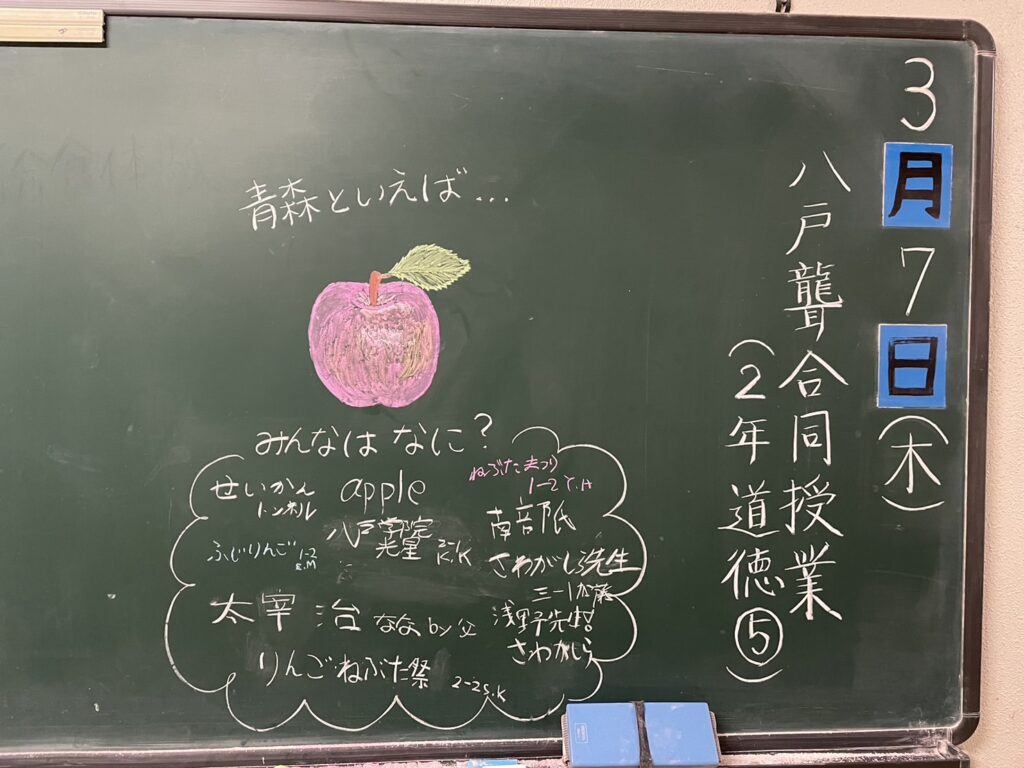 3月7日(木)
八戸聾合同授業
(2年道徳⑤)
青森といえば…
みんなは なに?
せいかん
トンネル
apple
ねぶたまつり
1-2 Y.H
ふじりんご 1-2
八戸学院
光星 2-1
K.K
南部氏
さわがしら先生
三一加藤
太宰 治 なな by 父
浅野先生
さわがしら
りんご・ねぶた祭 2-2 S.K